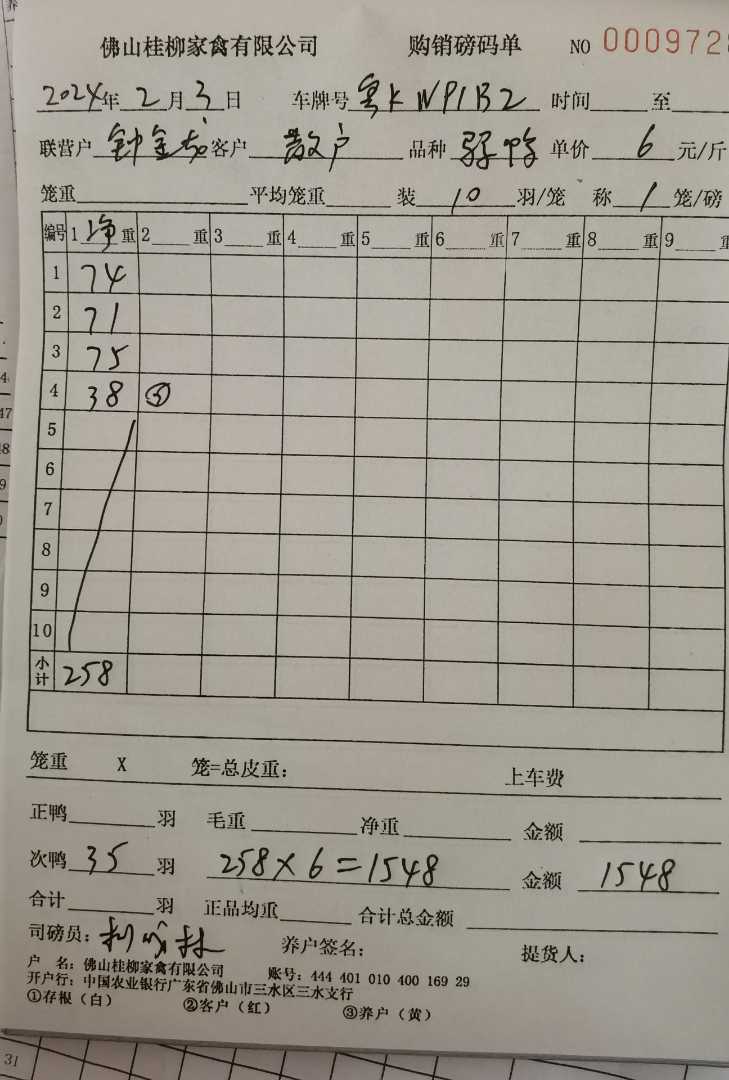 佛山桂柳家禽有限公司 购销磅码单 NO 0009728
2024年 2 月 3 日 车牌号 粤K WP1B2 时间 至
联营户 钟金 客户 散户 品种 弱鸭 单价 6 元/斤
笼重 平均笼重 装 10 羽/笼 称 1 笼/磅
编号 1 净 重 2 重 3 重 4 重 5 重 6 重 7 重 8 重 9 重
1 74
2 71
3 75
4 38 ⑤
5
6
7
8
9
10
小计 258
笼重 X 笼=总皮重： 上车费
正鸭 羽 毛重 净重 金额
次鸭 35 羽 258×6=1548 金额 1548
合计 羽 正品均重 合计总金额
司磅员： 养户签名： 提货人：
户 名：佛山桂柳家禽有限公司 账号：444 401 010 400 169 29
开户行：中国农业银行广东省佛山市三水区三水支行
①存根（白） ②客户（红） ③养户（黄）
31